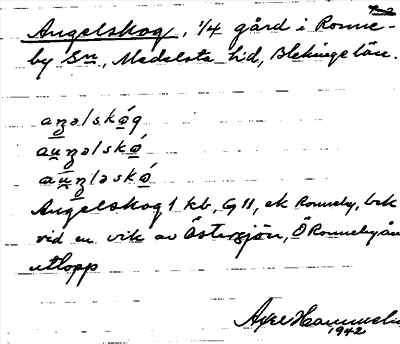 Angelskog, 1/4 gård i Ronne-
by Sn, Medelsta hd, Blekinge län.
aŋəlskóg
auŋəlskó
auŋləskó
Angelskog 1 kb, G 11, ek Ronneby, bek
vid en vik av Östersjön, Ö Ronnebyån
utlopp
Axel
1942